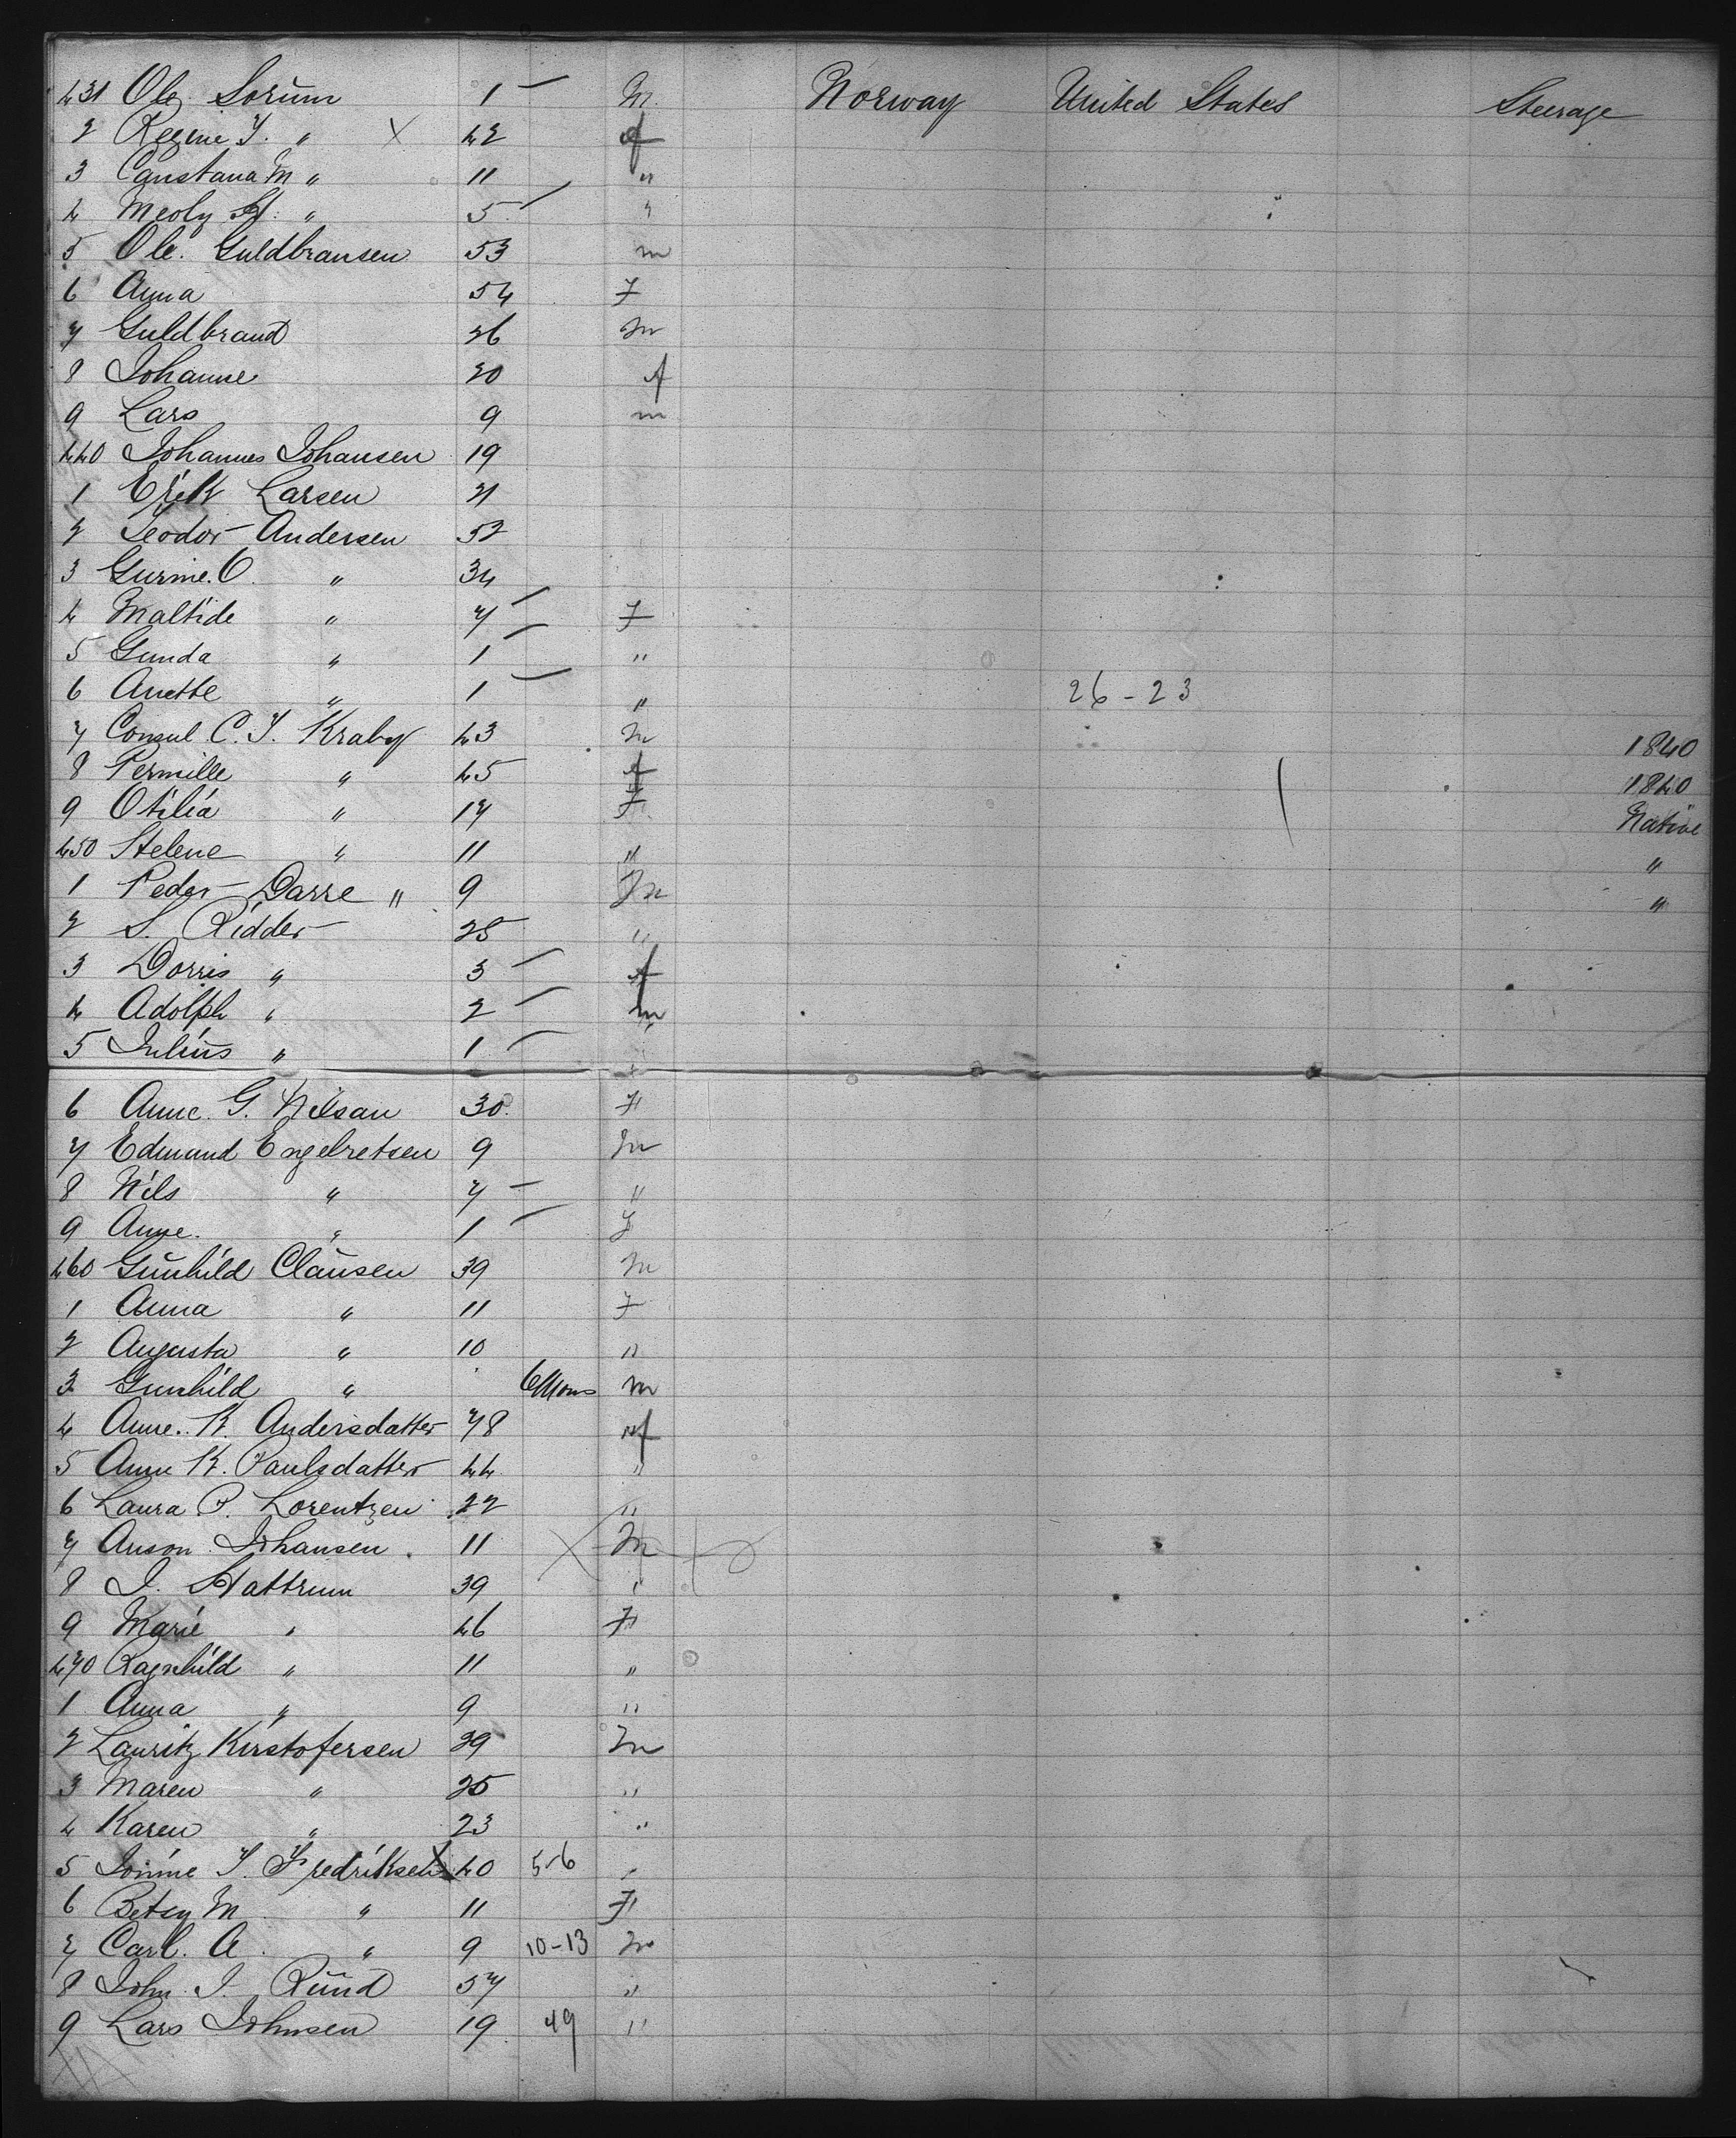 431 Ole Sorum 1 — M. Norway United States Steerage
2 Regine T. " X 42 f
3 Constana M " 11 "
4 Meoly H. " 5 — "
5 Ole. Guldbransen 53 m
6 Anna 54 F
7 Guldbrand 26 m
8 Johanne 20 f
9 Lars 9 m
440 Johannes Johansen 19
1 Erik Larsen 21
2 Teodor Andersen 52
3 Gurine. O. " 34
4 Maltide " 7 — F
5 Gunda " 1 — "
6 Anette " 1 — " 26-23
7 Consul C. T. Kraby 43 m 1840
8 Pernille " 45 f 1840
9 Otilia " 17 F Native
450 Helene " 11 " "
1 Peder Darre " 9 m "
2 S. Ridder 25 "
3 Dorris " 3 — f
4 Adolph " 2 — m
5 Julius " 1 — "
6 Anne. G. Nilsan 30. F
7 Edmand Engelretsen 9 m
8 Nils " 7 — "
9 Anne. " 1 — F
460 Gunhild Clausen 39 m
1 Anna " 11 F
2 Augusta " 10 "
3 Gunhild " 6 Mons m
4 Anne. K. Andersdatter 78 f
5 Anne K. Paulsdatter 44 "
6 Laura P. Lorentzen 22 "
7 Anson Johansen. 11 M
8 J. Hattrum 39 "
9 Marie " 46 F
470 Ragnhild " 11 "
1 Anna " 9 "
2 Lauritz Kirstofersen 29 m
3 Maren " 25 "
4 Karen " 23 "
5 Jonine T. Fredriksen X 40 5-6 "
6 Betsy M " 11 F
7 Carl. A. " 9 10-13 m
8 John. J. Rund 57 "
9 Lars Johnsen 19 49 "